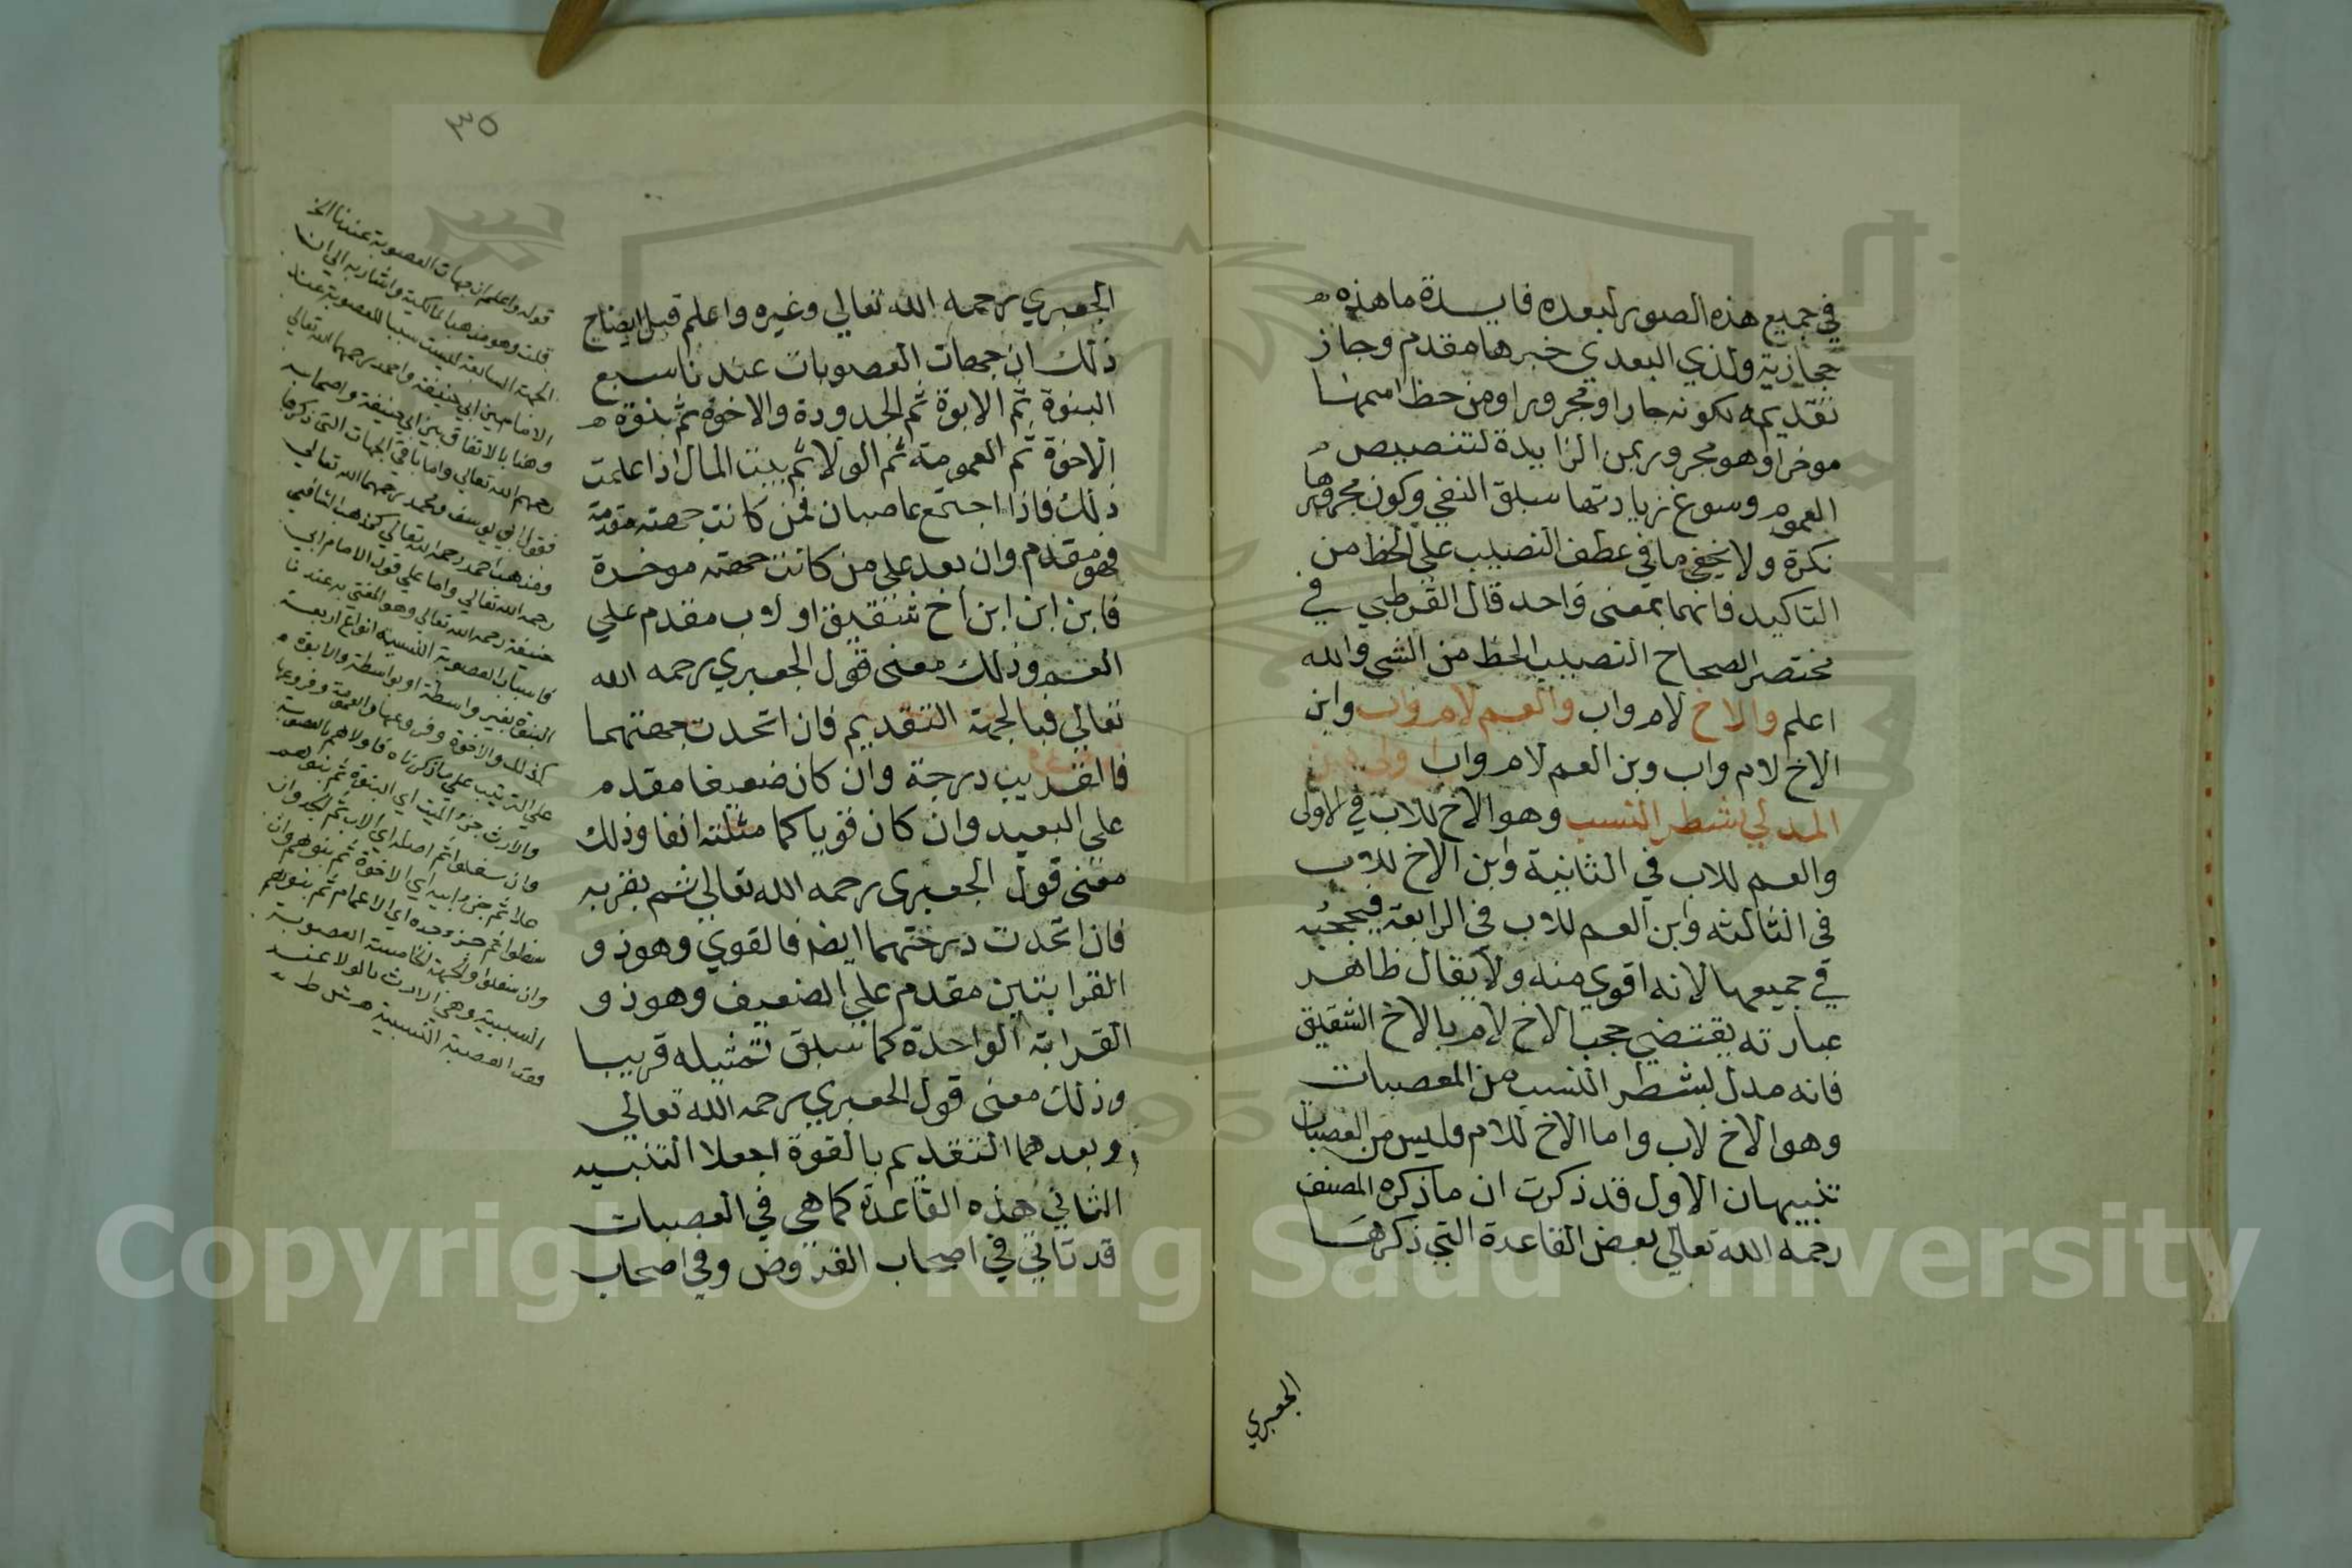 في جميع هذه الصور لبعده فايدة ما هذه
حجازية ولذي البعدي خبرها مقدم وجاز
تقديمه لكونه جارا ومجرورا ومن حظ اسمها
موخرا وهو مجرور بمن الزايدة لتنصيص
العموم وسوغ زيادتها سبق النفي وكون مجرورها
نكرة ولا يخفي ما في عطف النصيب علي الحظ من
التاكيد فانهما بمعنى واحد قال القرطبي في
مختصر الصحاح النصيب الحظ من الشي والله
اعلم والاخ لام واب والعم لام واب وابن
الاخ لام واب وبن العم لام واب اولى من
المدلي بشطر النسب وهو الاخ للاب في الاولى
والعم للاب في الثانية وابن الاخ للاب
في الثالثه وابن العم للاب في الرابعة فيحجبه
في جميعها لانه اقوي منه ولا يقال ظاهر
عبارته يقتضي حجب الاخ لام بالاخ الشقيق
فانه مدل بشطر النسب من المعصبات
وهو الاخ لاب واما الاخ للام فليس من العصبات
تنبيهان الاول قد ذكرت ان ما ذكره المصنف
رحمه الله تعالي بعض القاعدة التي ذكرها
الجعبري
٣٥
الجعبري رحمه الله تعالي وغيره واعلم قبل ايضاح
ذلك ان جهات العصوبات عندنا سبع
البنوة ثم الابوة ثم الجدودة والاخوة ثم بنوة
الاخوة ثم العمومة ثم الولا ثم بيت المال اذا علمت
ذلك فاذا اجتمع عاصبان فمن كانت جهته مقدمة
فهو مقدم وان بعد علي من كانت جهته موخرة
فابن ابن ابن أخ شقيق او لاب مقدم علي
العم وذلك معنى قول الجعبري رحمه الله
تعالي فبالجهة التقديم فان اتحدت جهتهما
فالقريب درجة وان كان ضعيفا مقدم
علي البعيد وان كان قويا كما مثلته انفا وذلك
معنى قول الجعبري رحمه الله تعالي ثم بقربه
فان اتحدت درجتهما ايضا فالقوي وهو ذو
القرابتين مقدم علي الضعيف وهو ذو
القرابة الواحدة كما سبق تمثيله قريبا
وذلك معنى قول الجعبري رحمه الله تعالي
وبعدهما التقديم بالقوة اجعلا التنبيه
الثاني هذه القاعدة كما هي في العصبات
قد تاتي في اصحاب الفروض وفي اصحاب
قوله واعلم ان جهات العصوبة عندنا الخ
قلت وهو مذهب المالكية واشار به الي ان
الجهة السابعة ليست سببا للعصوبة عند
الامامين ابي حنيفة واحمد رحمهما الله تعالي
وهنا بالاتفاق بين ابي حنيفة واصحابه
رحمهم الله تعالي واما باقي الجهات التي ذكرها
فقول ابي يوسف ومحمد رحمهما الله تعالي
ومذهب احمد رحمه الله تعالي كمذهب الشافعي
رحمه الله تعالي واما علي قول الامام ابي
حنيفة رحمه الله تعالي وهو المفتي به عندنا
فاسباب العصوبة النسبية انواع اربعة
البنوة بغير واسطة او بواسطة والابوة
كذلك والاخوة وفروعها والعمومة وفروعها
علي الترتيب علي ما ذكرناه فاولاهم بالعصوبة
والارث جزؤ الميت اي البنوة ثم بنوهم
وان سفلوا ثم اصله اي الاب ثم الجد وان
علا ثم جزؤ ابيه اي الاخوة ثم بنوهم وان
سفلوا ثم جزؤ جده اي الاعمام ثم بنوهم
وان سفلوا والجهة الخامسة العصوبة
السببية وهي الارث بالولا عند
فقد العصبة النسبية